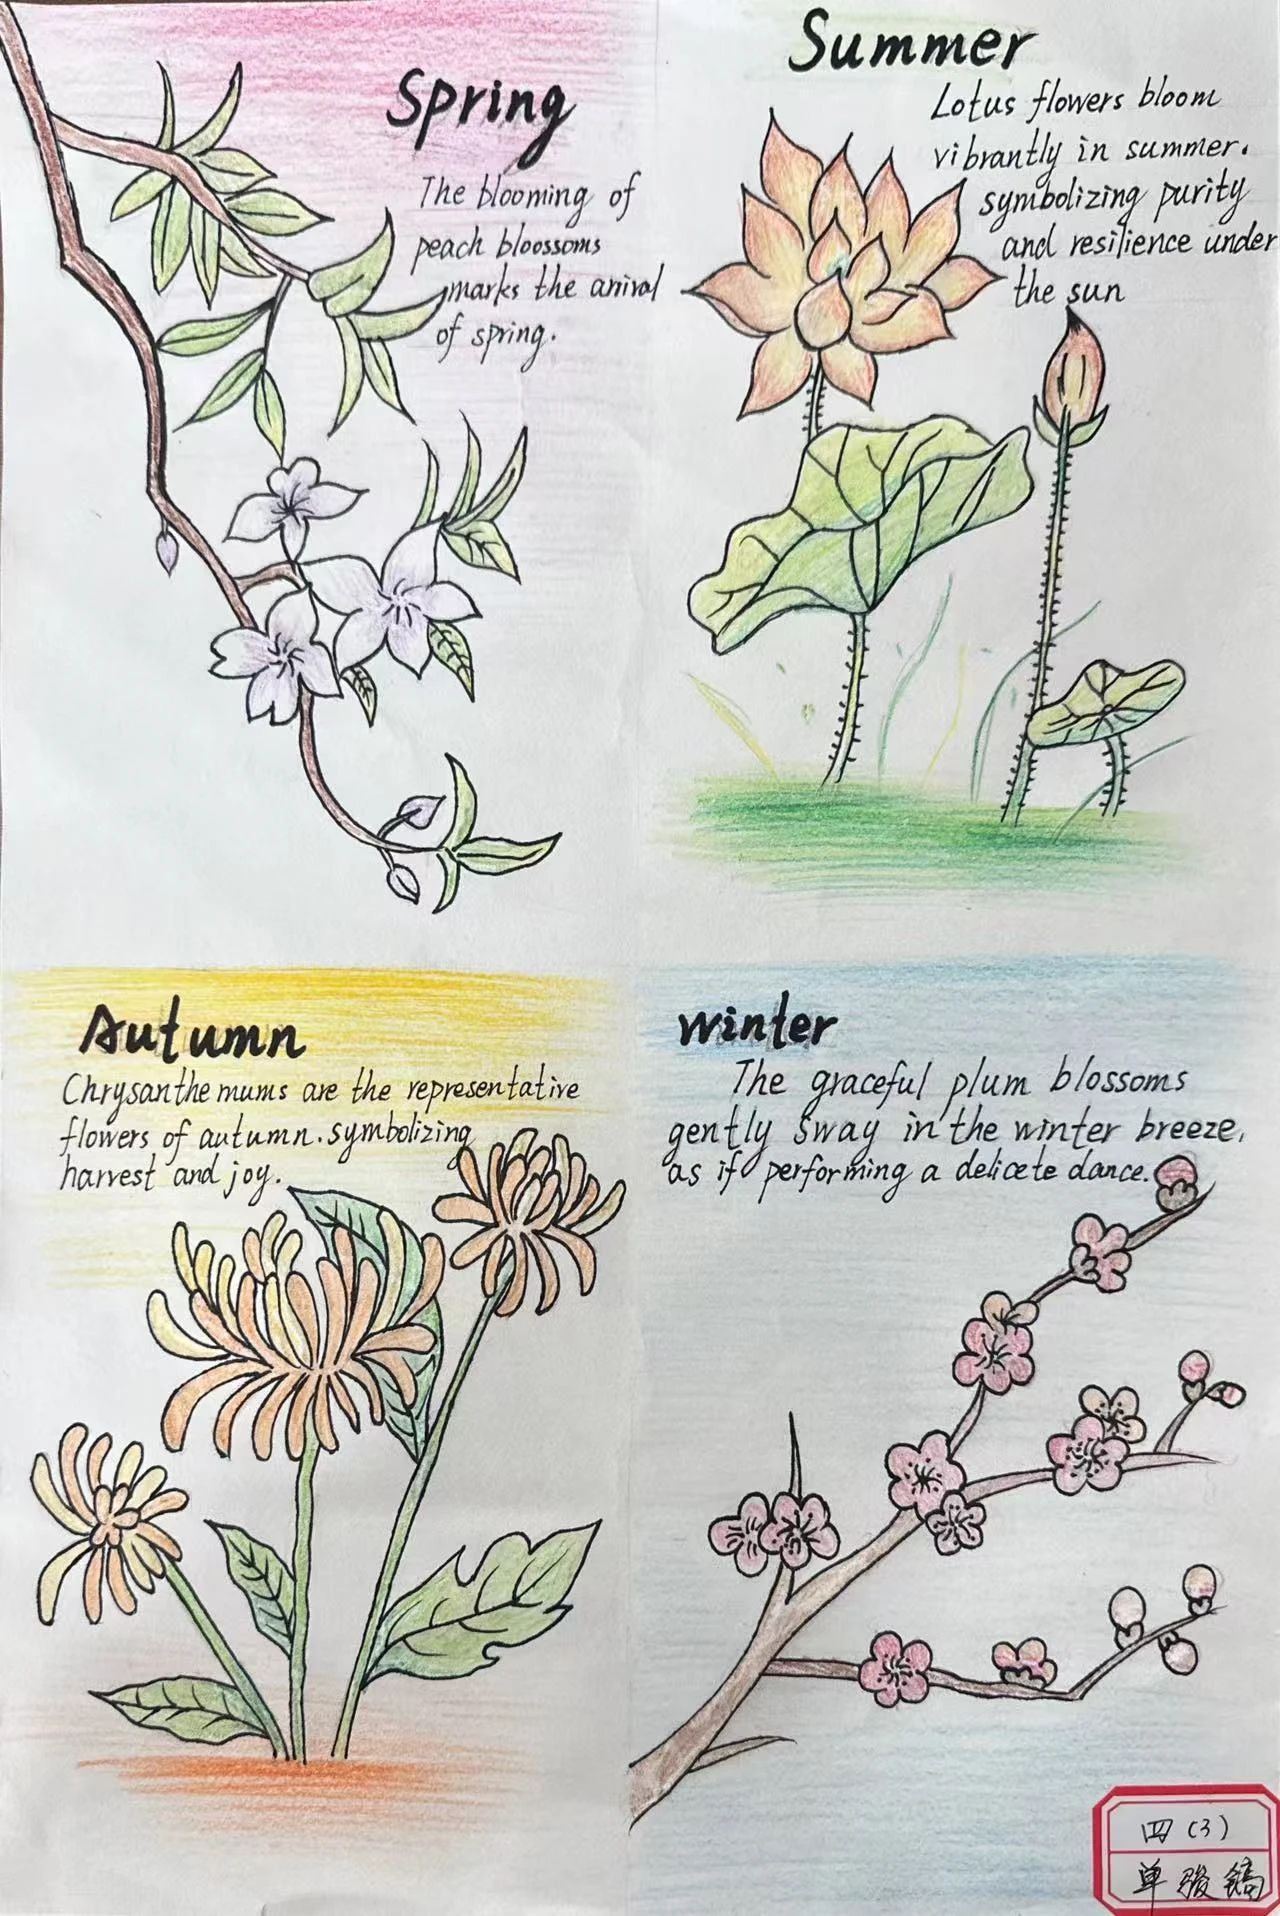 Spring
The blooming of
peach bloossoms
marks the arival
of spring.
Summer
Lotus flowers bloom
vibrantly in summer.
symbolizing purity
and resilience under
the sun
Autumn
Chrysanthemums are the representative
flowers of autumn.symbolizing
harvest and joy.
winter
The graceful plum blossoms
gently sway in the winter breeze,
as if performing a delicete dance.
四(3)
单骏镐